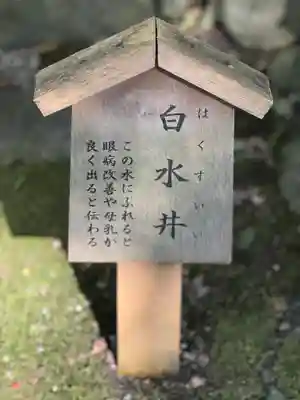 はくすいい
白水井
この水にふれると
眼病改善や母乳が
良く出ると伝わる